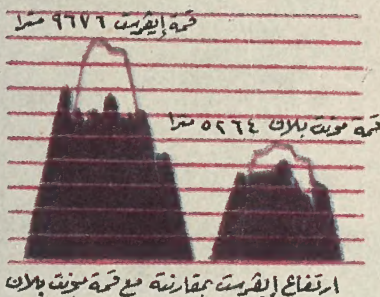 قمة إيڤرست ٩٦٧٦ مترا
قمة مونت بلان ٥٢٦٤ مترا
ارتفاع إيڤرست بمقارنة مع قمة مونت بلان